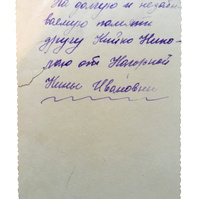 На долгую и незабы-
ваемую память
другу Кийко Нико-
лаю от Нагорной
Нины Ивановны